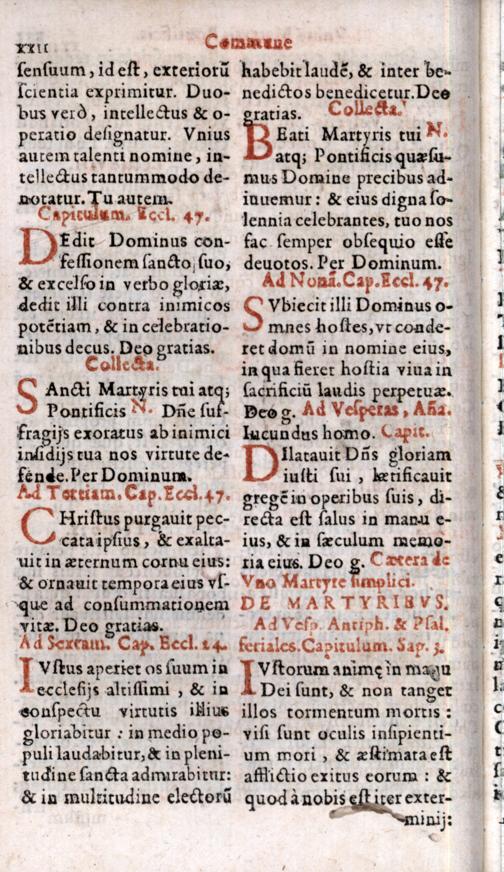 xxii
Commune
sensuum, id est, exteriorũ
scientia exprimitur. Duo-
bus verò, intellectus & o-
peratio designatur. Vnius
autem talenti nomine, in-
tellectus tantummodo de-
notatur. Tu autem.
Capitulum. Eccl. 47.
DEdit Dominus con-
fessionem sancto suo,
& excelso in verbo gloriæ,
dedit illi contra inimicos
potẽtiam, & in celebratio-
nibus decus. Deo gratias.
Collecta.
SAncti Martyris tui atq;
Pontificis N. Dñe suf-
fragijs exoratus ab inimici
insidijs tua nos virtute de-
fende. Per Dominum.
Ad Tertiam. Cap. Eccl. 47.
CHristus purgauit pec-
cata ipsius, & exalta-
uit in æternum cornu eius:
& ornauit tempora eius vs-
que ad consummationem
vitæ. Deo gratias.
Ad Sextam. Cap. Eccl. 24.
IVstus aperiet os suum in
ecclesijs altissimi, & in
conspectu virtutis illius
gloriabitur : in medio po-
puli laudabitur, & in pleni-
tudine sancta admirabitur:
& in multitudine electorũ
habebit laudẽ, & inter be-
nedictos benedicetur. Deo
gratias. Collecta.
BEati Martyris tui N.
atq; Pontificis quæsu-
mus Domine precibus ad-
iuuemur : & eius digna so-
lennia celebrantes, tuo nos
fac semper obsequio esse
deuotos. Per Dominum.
Ad Nonã. Cap. Eccl. 47.
SVbiecit illi Dominus o-
mnes hostes, vt conde-
ret domũ in nomine eius,
in qua fieret hostia viua in
sacrificiũ laudis perpetuæ.
Deo g. Ad Vesperas, Aña.
Iucundus homo. Capit.
DIlatauit Dñs gloriam
iusti sui, lætificauit
gregẽ in operibus suis, di-
recta est salus in manu e-
ius, & in sæculum memo-
ria eius. Deo g. Cætera de
Vno Martyre simplici.
DE MARTYRIBVS.
Ad Vesp. Antiph. & Psal.
feriales. Capitulum. Sap. 3.
IVstorum animę in manu
Dei sunt, & non tanget
illos tormentum mortis :
visi sunt oculis insipienti-
um mori, & æstimata est
afflictio exitus eorum : &
quod à nobis est iter exter-
minij: